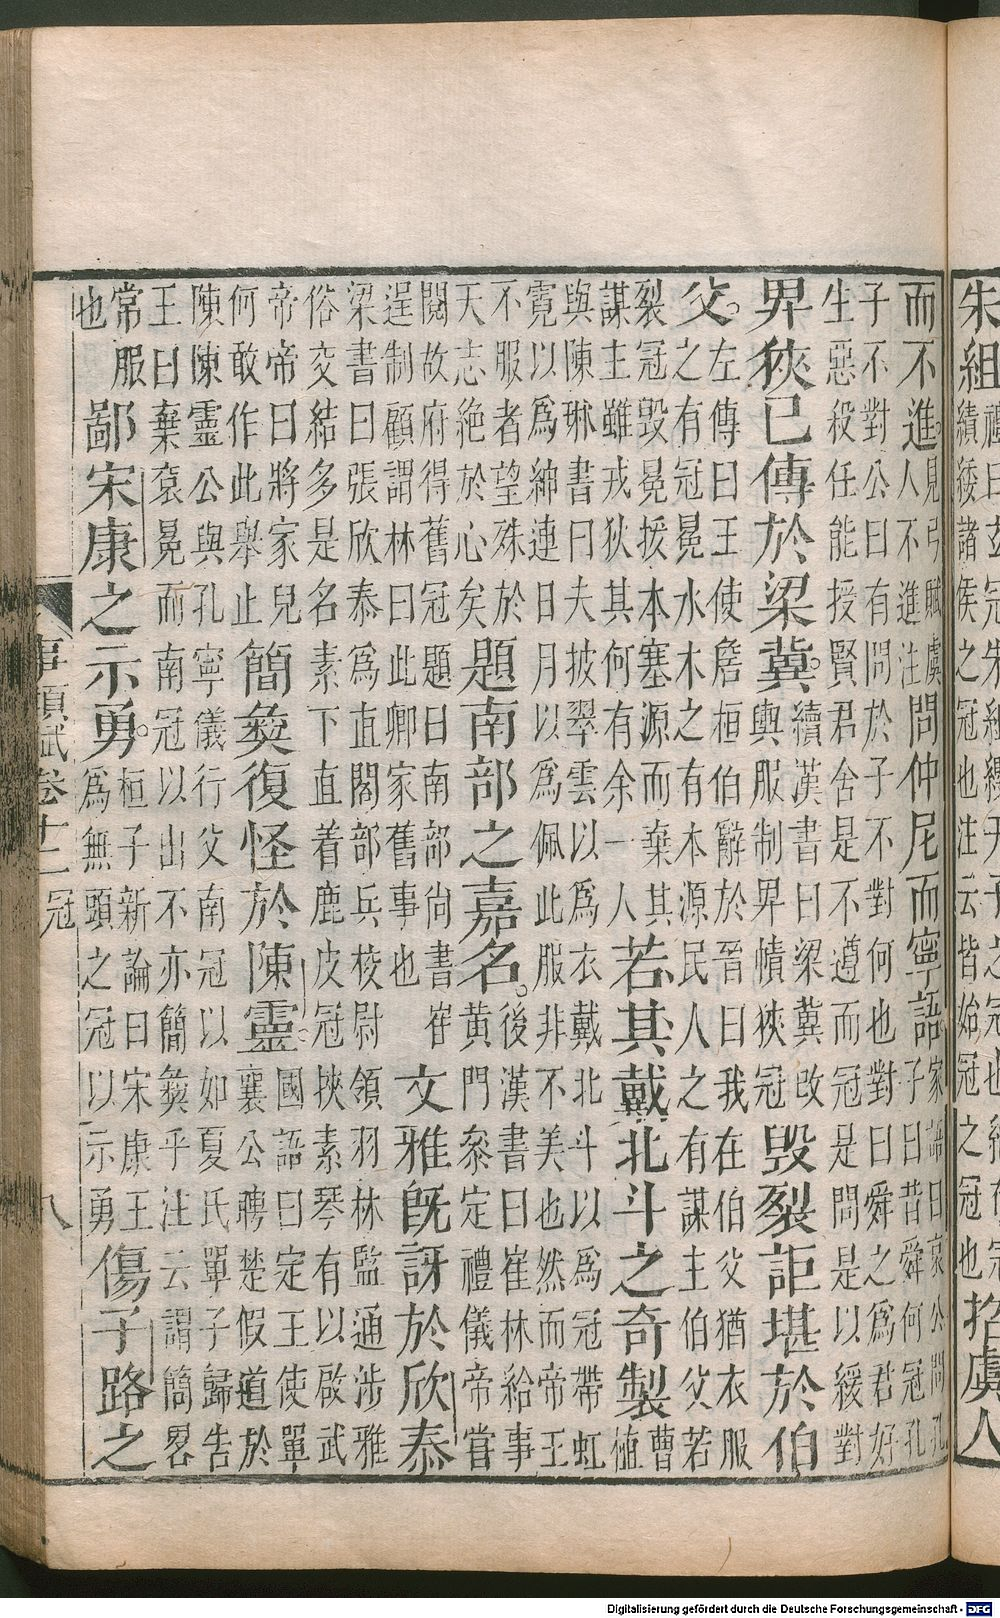 朱組禮曰玄冠朱組纓天子之冠也
績緌諸侯之冠也注云皆始冠之冠也招虞人
而不進見弓賦虞人不進注問仲尼而寧語家語曰哀公問孔子曰昔舜何冠孔
子不對公曰有問於子不對何也對曰舜之為君好
生惡殺任能授賢君舍是不遵而冠是問是以緩對
畀狹已傳於梁冀續漢書曰梁冀改輿服制畀幘狹冠毀裂詎堪於伯
父左傳曰王使詹桓伯辭於晉曰我在伯父猶衣服
之有冠冕水木之有本源民人之有謀主伯父若
裂冠毀冕援本塞源而棄其
謀主雖戎狄其何有余一人若其戴北斗之奇製曹植
與陳琳書曰夫披翠雲以為衣戴北斗以為冠帶虹
霓以為紳連日月以為佩此服非不美也然而帝王
不服者望殊於
天志絕於心矣題南部之嘉名後漢書曰崔林給事黃門參定禮儀帝嘗
閱故府得舊冠題曰南部尚書崔
逞制顧謂林曰此卿家舊事也文雅既訝於欣泰
梁書曰張欣泰為直閣部兵校尉領羽林監通涉雅
俗交結多是名素下直着鹿皮冠挾素琴有以啟武
帝帝曰將家兒
何敢作此舉止簡彝復怪於陳靈國語曰定王使單襄公聘楚假道於
陳陳靈公與孔寧儀行父南冠以如夏氏單子歸告
王曰棄袞冕而南冠以出不亦簡彝乎注云謂簡畧
常服
也鄙宋康之示勇桓子新論曰宋康王為無頭之冠以示勇傷子路之
事類賦卷十二 冠 八
Digitalisierung gefördert durch die Deutsche Forschungsgemeinschaft - DFG